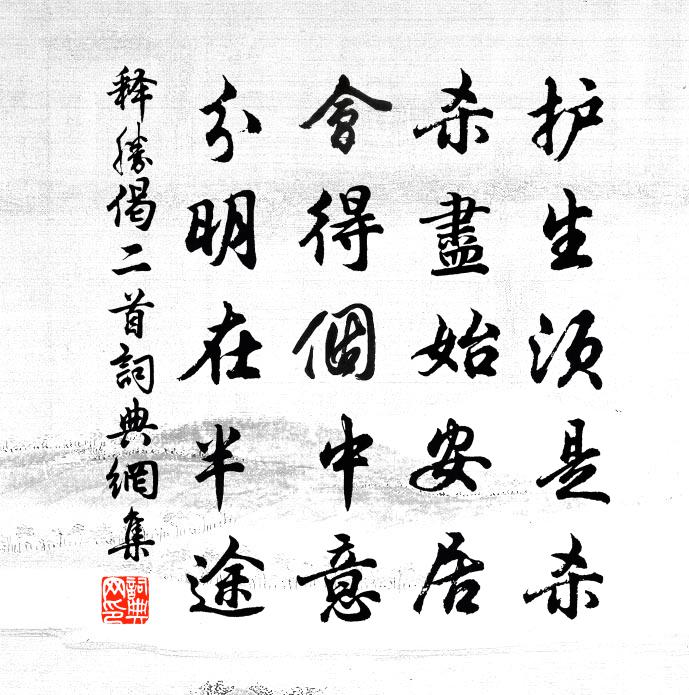 护生须是杀
杀盡始安居
會得個中意
分明在半途
释勝偈二首詞典網集
詞典網印